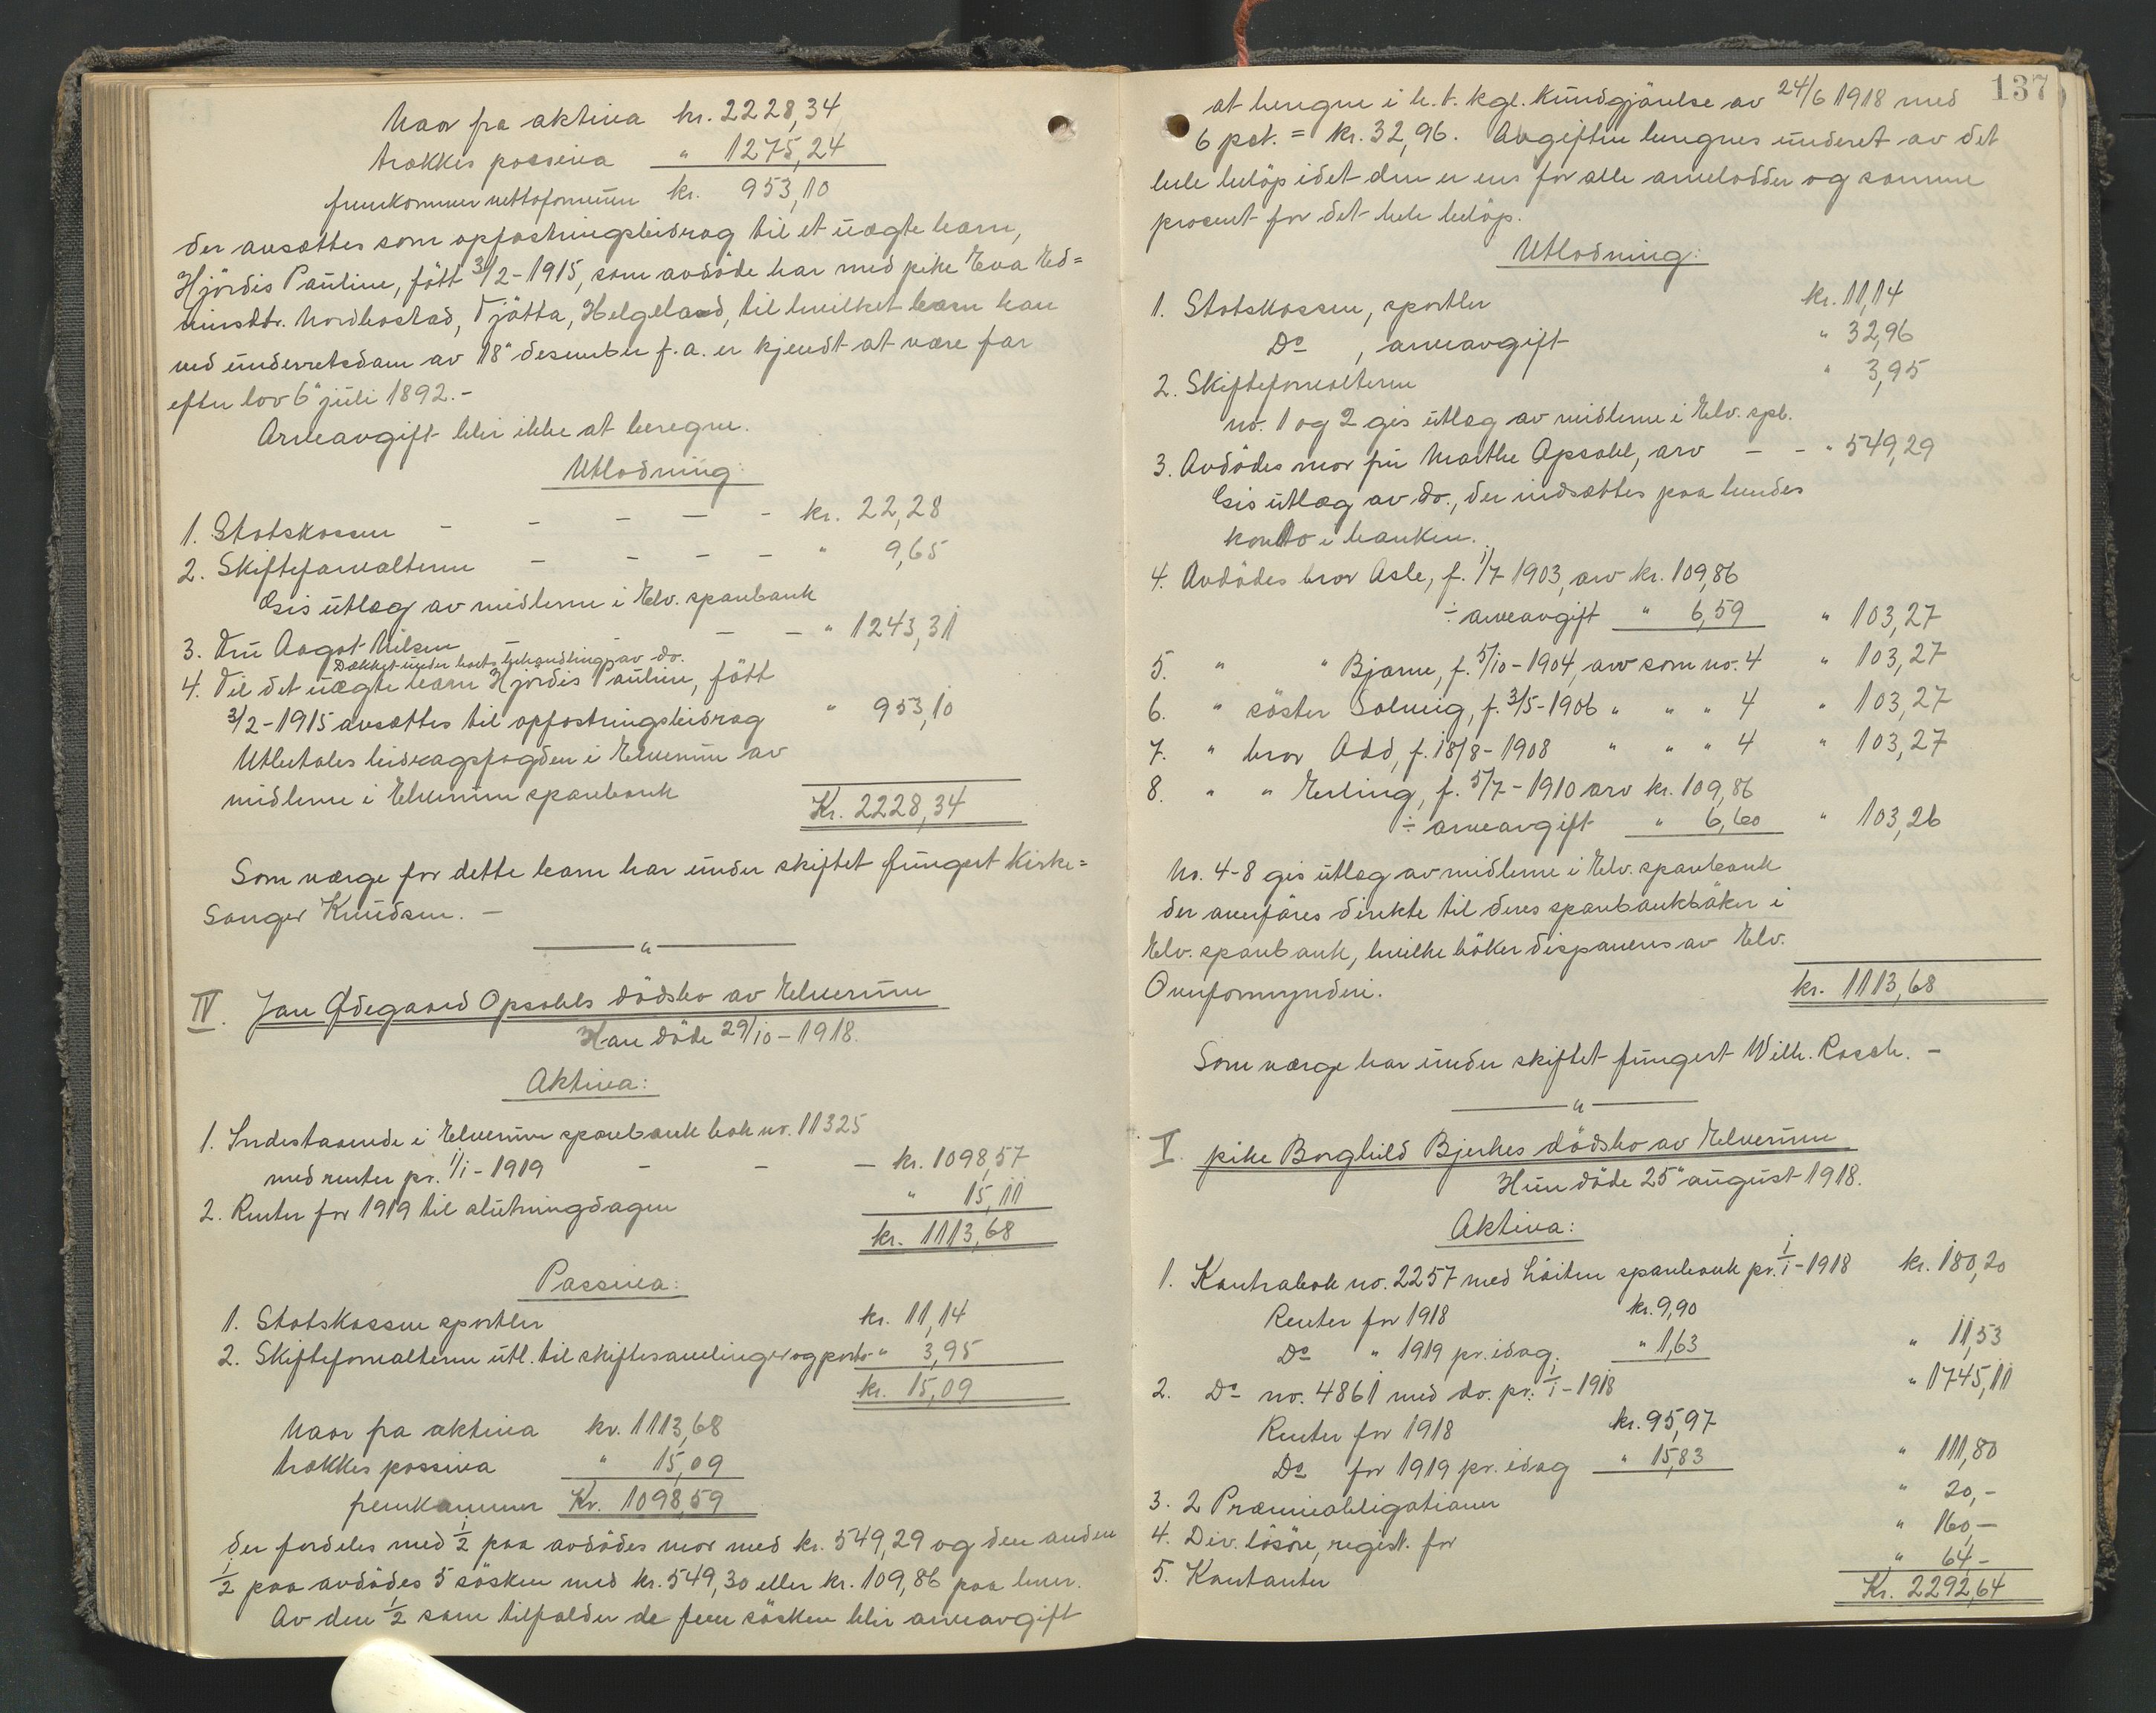 Naar fra aktiva kr. 2228,34
trækkes passiva " 1275,24
fremkommer nettoformuen kr. 953,10
der avsættes som opfostringsbidrag til et uægte barn,
Hjördis Pauline, fött 3/2-1915, som avdöde har med pike Eva Ed=
vinsdtr. Nordbostad, Tjötta, Helgeland, til hvilket barn han
ved underretsdom av 18" desember f.a. er kjendt at være far
efter lov 6" juli 1892.-
Arveavgift blir ikke at beregne.
Utlodning:
1. Statskassen - - - - - kr. 22,28
2. Skifteforvalteren - - - - " 9,65
Gis utlæg av midlerne i Elv. sparebank
3. Fru Aagot Nilsen - - " 1243,31
Dækket under boets behandling av do.
4. Til det uægte barn Hjördis Pauline, fött
3/2-1915 avsættes til opfostringsbidrag " 953,10
Utbetales bidragsfogden i Elverum av
midlerne i Elverum sparebank
Kr. 2228,34
Som værge for dette barn har under skiftet fungert Kirke=
sanger Knudsen. -
"
IV. Jan Ødegaard Opsahls dödsbo av Elverum
Han döde 29/10-1918.
Aktiva:
1. Indestaaende i Elverum sparebank bok nr. 11325
med renter pr. 1/1-1919 - - - kr. 1098,57
2. Renter for 1919 til slutningsdagen " 15,11
kr. 1113,68
Passiva:
1. Statskassen sportler kr. 11,14
2. Skifteforvalteren utl. til skiftesamlinger og porto " 3,95
kr. 15,09
Naar fra aktiva kr. 1113,68
trækkes passiva " 15,09
fremkommer Kr. 1098,59
der fordeles med 1/2 paa avdödes mor med kr. 549,29 og den anden
1/2 paa avdödes 5 sösken med kr. 549,30 eller kr. 109,86 paa hver.
Av den 1/2 som tilfalder de fem sösken blir arveavgift
137
at beregne i h.t. kgl. Kundgjörelse av 24/6 1918 med
6 pct. = kr. 32,96. Avgiften beregnes underet av det
hele belöp idet den er ens for alle arvelodder og samme
procent for det hele belöp.
Utlodning:
1. Statskassen, sportler kr. 11,14
Do , arveavgift " 32,96
2. Skifteforvalteren " 3,95
no. 1 og 2 gis utlæg av midlerne i Elv. spb.
3. Avdödes mor fru Marthe Opsahl, arv - - " 549,29
Gis utlæg av do., der indsættes paa hendes
konto i banken.
4. Avdödes bror Asle, f. 1/7 1903, arv kr. 109,86
÷ arveavgift " 6,59 " 103,27
5. " " Bjarne, f. 5/10-1904, arv som no. 4 " 103,27
6. " söster Solveig, f. 3/5-1906 " " " 4 " 103,27
7. " bror Odd, f. 18/8-1908 " " " 4 " 103,27
8. " " Erling, f. 5/7-1910 arv kr. 109,86
÷ arveavgift " 6,60 " 103,26
No. 4-8 gis utlæg av midlerne i Elv. sparebank
der overföres direkte til deres sparebankböker i
Elv. sparebank, hvilke böker disponeres av Elv.
Overformynderi. kr. 1113,68
Som værge har under skiftet fungert Wilh. Rasch. -
"
V. pike Borghild Bjerkes dödsbo av Elverum
Hun döde 25" august 1918.
Aktiva:
1. Kontrabok no. 2257 med Löiten sparebank pr. 1/1-1918 kr. 180,20
Renter for 1918 kr. 9,90
Do " 1919 pr. idag. " 1,63 " 11,53
2. Do no. 4861 med do. pr. 1/1-1918 " 1745,11
Renter for 1918 kr. 95,97
Do for 1919 pr. idag " 15,83 " 111,80
3. 2 Præmieobligationer " 20,-
4. Div. lösöre, regist. for " 160,-
5. Kontanter " 64-
Kr. 2292,64